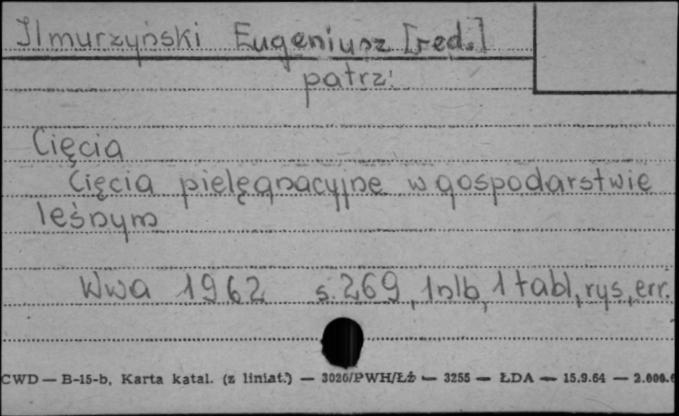 Ilmurzyński Eugeniusz [red.]
patrz:
Cięcia
Cięcia pielęgnacyjne w gospodarstwie
leśnym
Wwa 1962 s. 269, 1nlb, 1 tabl, rys, err.
CWD — B-15-b, Karta katal. (z liniat.) — 3020/PWH/Łż — 3255 — ŁDA — 15.9.64 — 2.000.